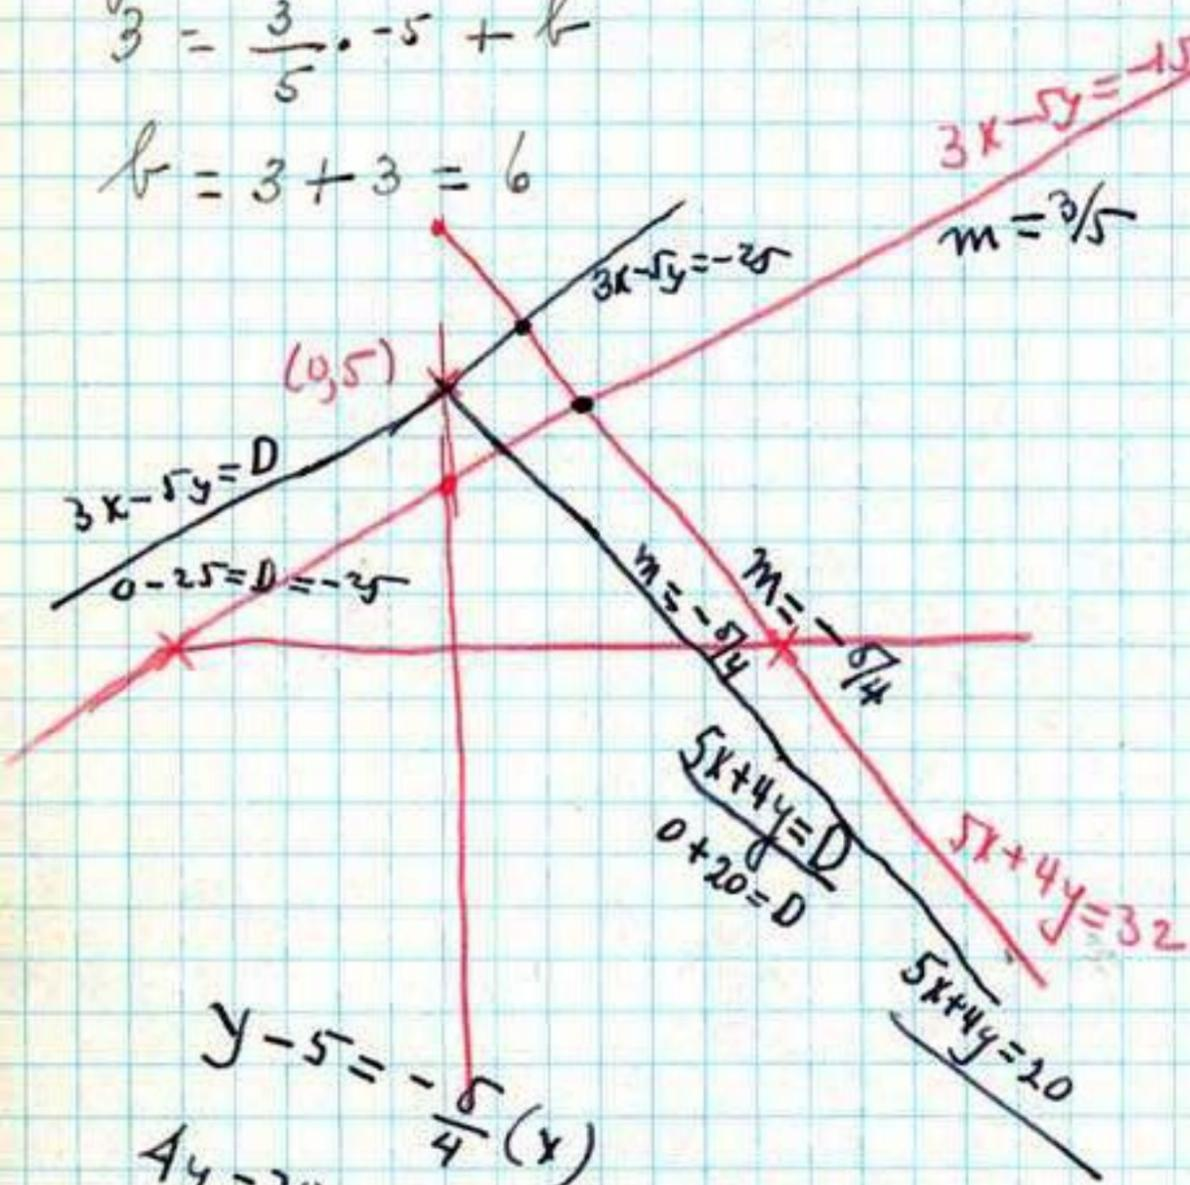 3 = 3/5 · -5 + b
b = 3 + 3 = 6
3x-5y=-15
m = 3/5
3x-5y=-25
(0,5)
3x-5y=D
0-25=D=-25
m=-5/4
m=-5/4
5x+4y=D
0+20=D
5x+4y=32
5x+4y=20
y-5=-5/4(x)